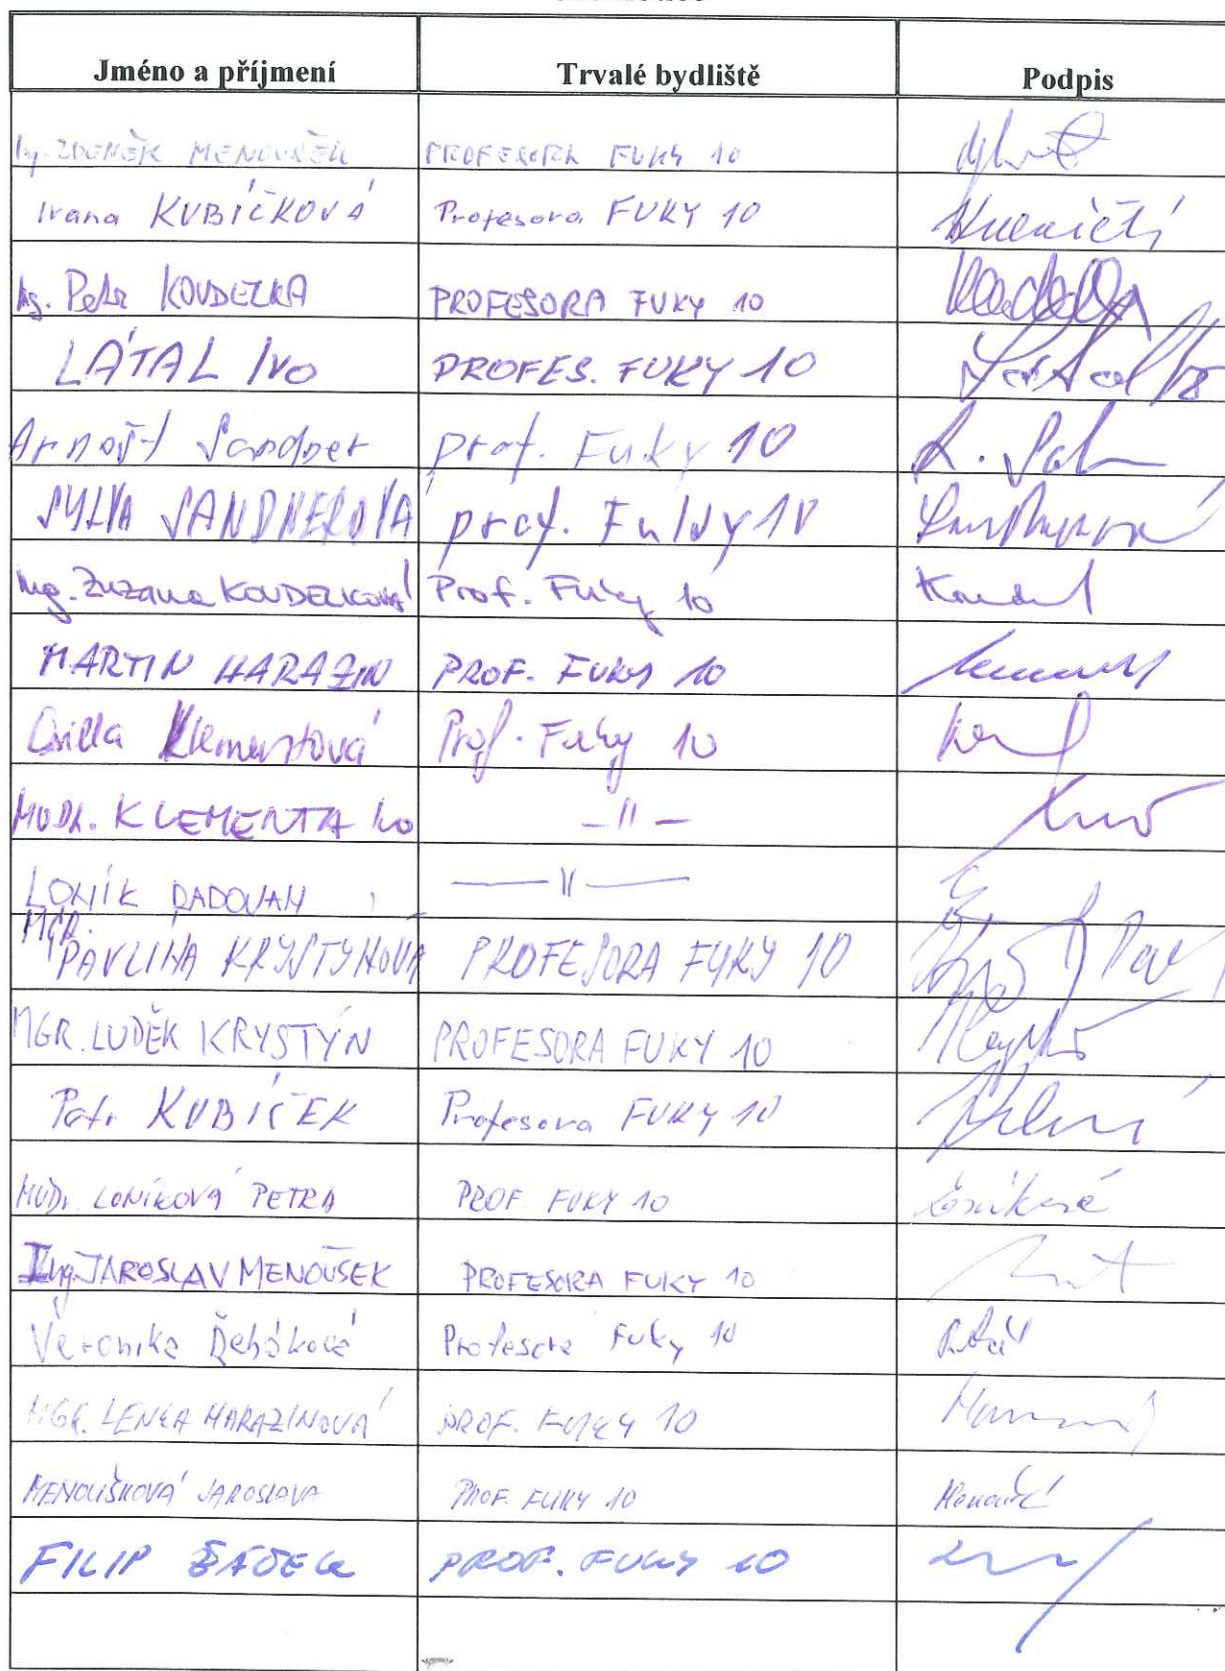 Jméno a příjmení Trvalé bydliště Podpis
Ing. ZDENĚK MENOUŠEK PROFESORA FUKY 10
Ivana KUBÍČKOVÁ Profesora FUKY 10
Ing. Petr KOUDELKA PROFESORA FUKY 10
LÁTAL IVO PROFES. FUKY 10 Látal Ivo
Arnošt Sandner prof. Fuky 10
SYLVA SANDNEROVÁ prof. Fuky 10
Ing. Zuzana KOUDELKOVÁ Prof. Fuky 10
MARTIN HARAZIN PROF. FUKY 10
Klementová Prof. Fuky 10
MUDR. KLEMENTA IVO —II—
LONÍK RADOVAN —II—
MGR.
PAVLÍNA KRYSTYNOVÁ PROFESORA FUKY 10
MGR. LUDĚK KRYSTÝN PROFESORA FUKY 10
Petr KUBÍČEK Profesora FUKY 10
MUDr. LONÍKOVÁ PETRA PROF. FUKY 10 Loníková
Ing. JAROSLAV MENOUŠEK PROFESORA FUKY 10
Veronika Řeháková Profesora Fuky 10
MGR. LENKA HARAZINOVÁ PROF. FUKY 10
MENOUŠKOVÁ JAROSLAVA PROF. FUKY 10
FILIP PROF. FUKY 10